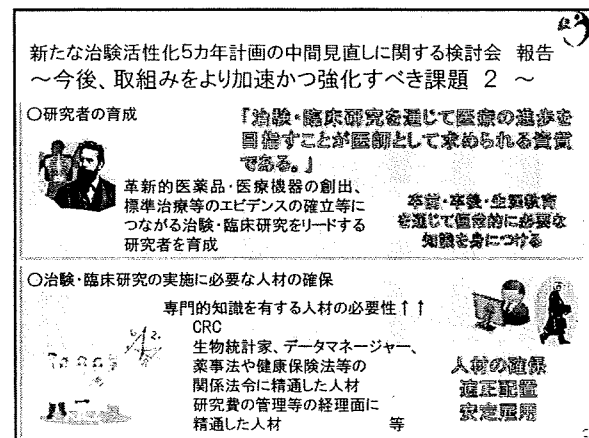 新たな治験活性化5カ年計画の中間見直しに関する検討会 報告
～今後、取組みをより加速かつ強化すべき課題 2 ～
○研究者の育成
「治験・臨床研究を通じて医療の進歩を
目指すことが医師として求められる資質
である。」
革新的医薬品・医療機器の創出、
標準治療等のエビデンスの確立等に
つながる治験・臨床研究をリードする
研究者を育成
卒前・卒後・生涯教育
を通じて恒常的に必要な
知識を身につける
○治験・臨床研究の実施に必要な人材の確保
専門的知識を有する人材の必要性↑↑
CRC
生物統計家、データマネージャー、
薬事法や健康保険法等の
関係法令に精通した人材
研究費の管理等の経理面に
精通した人材 等
人材の確保
適正配置
安定雇用